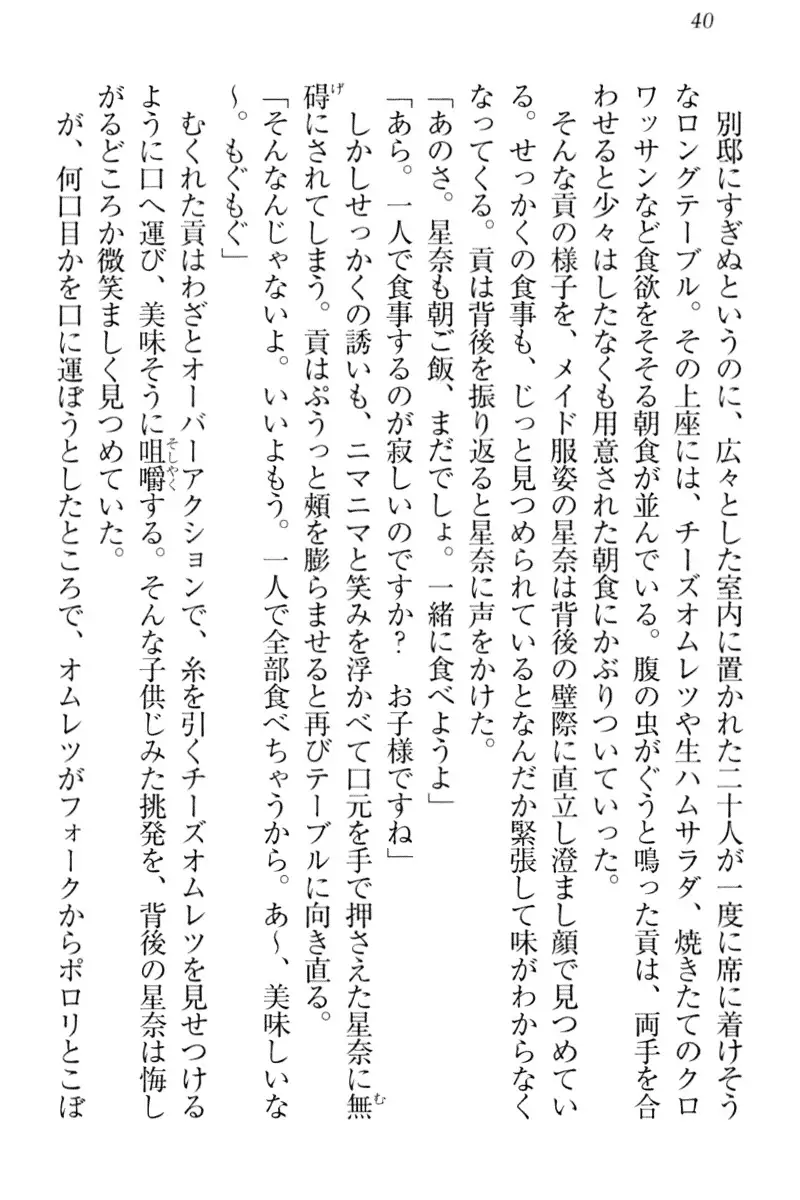 40
別邸にすぎぬというのに、広々とした室内に置かれた二十人が一度に席に着けそう
なロングテーブル。その上座には、チーズオムレツや生ハムサラダ、焼きたてのクロ
ワッサンなど食欲をそそる朝食が並んでいる。腹の虫がぐうと鳴った貢は、両手を合
わせると少々はしたなくも用意された朝食にかぶりついていった。
そんな貢の様子を、メイド服姿の星奈は背後の壁際に直立し澄まし顔で見つめてい
る。せっかくの食事も、じっと見つめられているとなんだか緊張して味がわからなく
なってくる。貢は背後を振り返ると星奈に声をかけた。
「あのさ。星奈も朝ご飯、まだでしょ。一緒に食べようよ」
「あら。一人で食事するのが寂しいのですか? お子様ですね」
しかしせっかくの誘いも、ニマニマと笑みを浮かべて口元を手で押さえた星奈に無む
碍げにされてしまう。貢はぷうっと頰を膨らませると再びテーブルに向き直る。
「そんなんじゃないよ。いいよもう。一人で全部食べちゃうから。あ〜、美味しいな
〜。もぐもぐ」
むくれた貢はわざとオーバーアクションで、糸を引くチーズオムレツを見せつける
ように口へ運び、美味そうに咀嚼そしゃくする。そんな子供じみた挑発を、背後の星奈は悔し
がるどころか微笑ましく見つめていた。
が、何口目かを口に運ぼうとしたところで、オムレツがフォークからポロリとこぼ